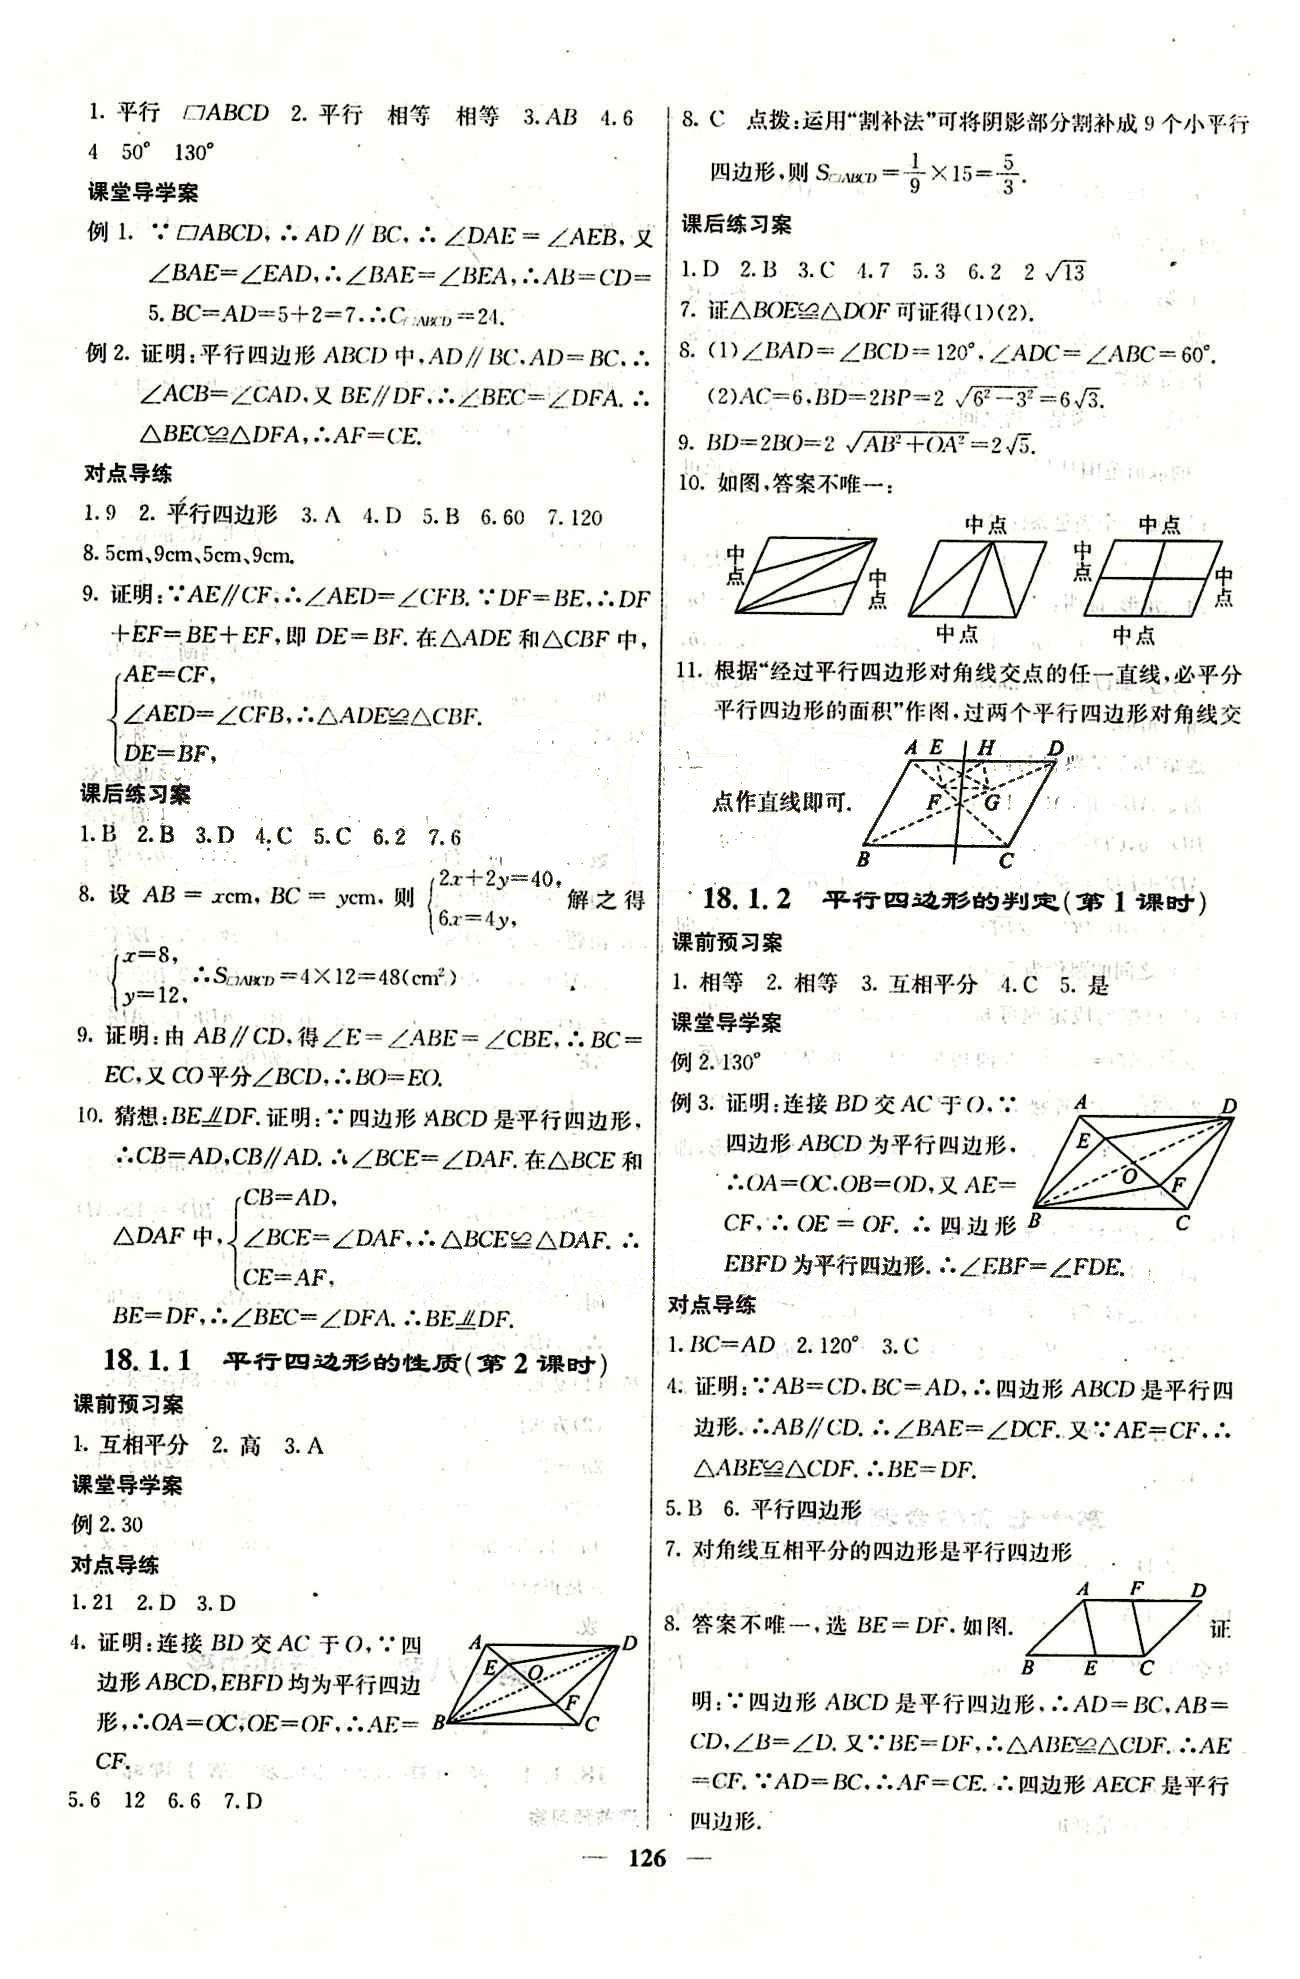 1. 平行 □ABCD 2. 平行 相等 相等 3. AB 4. 6
4 50° 130°
课堂导学案
例 1. ∵□ABCD, ∴AD∥BC, ∴∠DAE=∠AEB, 又
∠BAE=∠EAD, ∴∠BAE=∠BEA, ∴AB=CD=
5. BC=AD=5+2=7. ∴C□ABCD=24.
例 2. 证明:平行四边形 ABCD 中, AD∥BC, AD=BC, ∴
∠ACB=∠CAD, 又 BE∥DF, ∴∠BEC=∠DFA. ∴
△BEC≌△DFA, ∴AF=CE.
对点导练
1. 9 2. 平行四边形 3. A 4. D 5. B 6. 60 7. 120
8. 5cm、9cm、5cm、9cm.
9. 证明:∵AE∥CF, ∴∠AED=∠CFB. ∵DF=BE, ∴DF
+EF=BE+EF, 即 DE=BF. 在△ADE 和△CBF 中,
AE=CF,
∠AED=∠CFB, ∴△ADE≌△CBF.
DE=BF,
课后练习案
1. B 2. B 3. D 4. C 5. C 6. 2 7. 6
8. 设 AB = xcm, BC = ycm, 则 { 2x+2y=40, 6x=4y, 解之得
{ x=8, y=12, ∴S□ABCD=4×12=48(cm²)
9. 证明:由 AB∥CD, 得∠E=∠ABE=∠CBE, ∴BC=
EC, 又 CO 平分∠BCD, ∴BO=EO.
10. 猜想:BE⫫DF. 证明:∵四边形 ABCD 是平行四边形,
∴CB=AD, CB∥AD. ∴∠BCE=∠DAF. 在△BCE 和
CB=AD,
△DAF 中, ∠BCE=∠DAF, ∴△BCE≌△DAF. ∴
CE=AF,
BE=DF, ∴∠BEC=∠DFA. ∴BE⫫DF.
18.1.1 平行四边形的性质(第 2 课时)
课前预习案
1. 互相平分 2. 高 3. A
课堂导学案
例 2. 30
对点导练
1. 21 2. D 3. D
4. 证明:连接 BD 交 AC 于 O, ∵四
边形 ABCD, EBFD 均为平行四边
形, ∴OA=OC, OE=OF, ∴AE=
CF.
A D E O F B C
5. 6 12 6. 6 7. D
8. C 点拨:运用“割补法”可将阴影部分割补成 9 个小平行
四边形, 则 S□ABCD=1/9×15=5/3.
课后练习案
1. D 2. B 3. C 4. 7 5. 3 6. 2 2√13
7. 证△BOE≌△DOF 可证得(1)(2).
8. (1)∠BAD=∠BCD=120°, ∠ADC=∠ABC=60°.
(2)AC=6, BD=2BP=2√(6²−3²)=6√3.
9. BD=2BO=2√(AB²+OA²)=2√5.
10. 如图, 答案不唯一:
中点 中点
中点 中点 中点 中点
中点 中点
11. 根据“经过平行四边形对角线交点的任一直线, 必平分
平行四边形的面积”作图, 过两个平行四边形对角线交
点作直线即可.
A E H D
F G
B C
18.1.2 平行四边形的判定(第 1 课时)
课前预习案
1. 相等 2. 相等 3. 互相平分 4. C 5. 是
课堂导学案
例 2. 130°
例 3. 证明:连接 BD 交 AC 于 O, ∵
四边形 ABCD 为平行四边形,
∴OA=OC, OB=OD, 又 AE=
CF, ∴OE=OF. ∴四边形
EBFD 为平行四边形. ∴∠EBF=∠FDE.
A D E O F B C
对点导练
1. BC=AD 2. 120° 3. C
4. 证明:∵AB=CD, BC=AD, ∴四边形 ABCD 是平行四
边形. ∴AB∥CD. ∴∠BAE=∠DCF. 又∵AE=CF, ∴
△ABE≌△CDF. ∴BE=DF.
5. B 6. 平行四边形
7. 对角线互相平分的四边形是平行四边形
A F D
8. 答案不唯一, 选 BE=DF, 如图. 证
B E C
明:∵四边形 ABCD 是平行四边形, ∴AD=BC, AB=
CD, ∠B=∠D. 又∵BE=DF, ∴△ABE≌△CDF. ∴AE
=CF. ∵AD=BC, ∴AF=CE. ∴四边形 AECF 是平行
四边形.
— 126 —